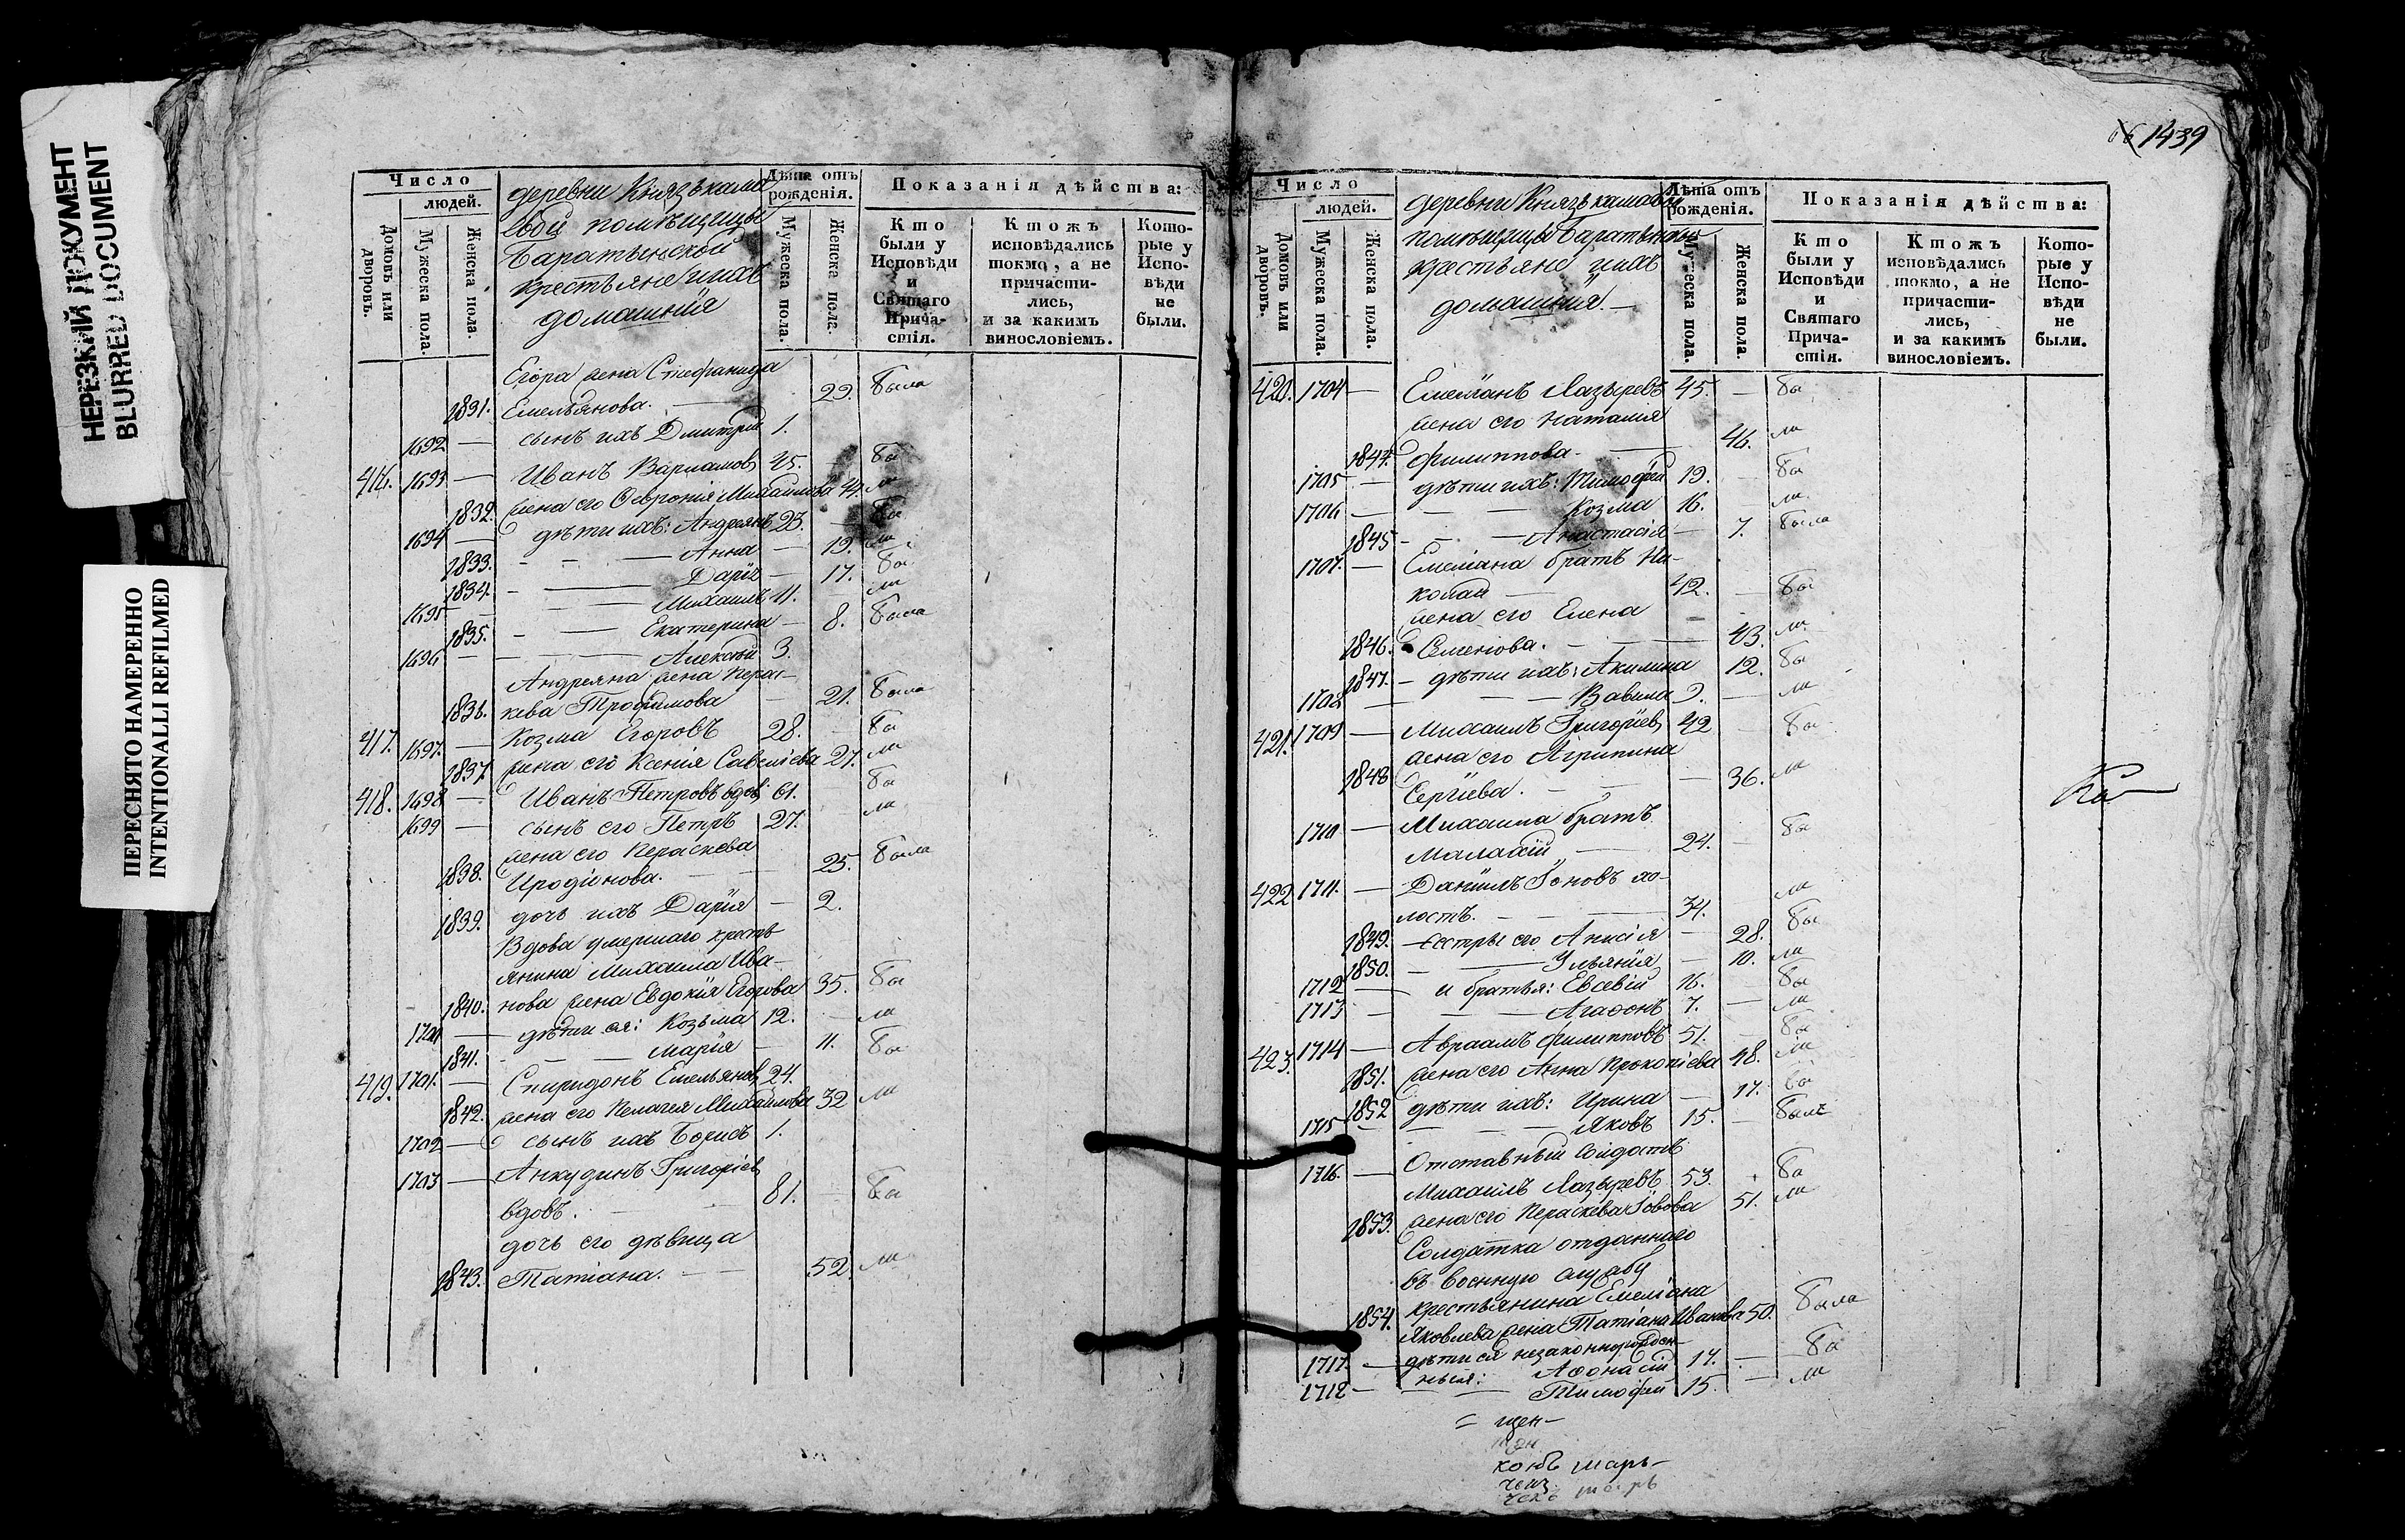 НЕРЕЗКИЙ ДОКУМЕНТ
BLURRED DOCUMENT
ПЕРЕСНЯТО НАМЕРЕННО
INTENTIONALLI REFILMED
Число
людей.
Домовъ или дворовъ.
Мужеска пола.
Женска пола.
деревни Князькамы
вой помѣщицы
Баратынской
крестьяне и ихъ
домашнія
Лѣта отъ рожденія.
Мужеска пола.
Женска пола.
Показанія дѣйства:
Кто были у Исповѣди и Святаго Прича- стія.
Ктожъ исповѣдались токмо, а не причасти- лись, и за какимъ винословіемъ.
Кото- рые у Испо- вѣди не были.
Егора жена Стефанида
1831. Емельянова. 22. была
1692 — сынъ ихъ Дмитрій 1.
416. 1693 — Иванъ Варламов 45. — бы
1832. жена его Февронія Михайлова 44. ли
1694 — дѣти ихъ: Андреянъ 23. — бы
1833. — — Анна — 19. ли
1834. — — Дарія — 17. бы
1695 — — Михаилъ 11. ли
1835. — — Екатерина — 8. была
1696 — — Алексѣй 3.
Андреяна жена Перас-
1836. кева Трофимова — 21. была
417. 1697. — Козма Егоровъ 28. — бы
1837. жена его Ксенія Савеліева 27. ли
418. 1698 — Иванъ Петровъ вдов 61. бы
1699 — сынъ его Петръ 27. ли
жена его Параскева
1838. Иродіонова. — 25. была
1839. дочь ихъ Дарія — 2.
Вдова умершаго кресть-
янина Михаила Ива-
1840. нова жена Евдокія Егорова 35. бы
1700 — дѣти ея: Козьма 12. — ли
1841. — — Марія — 11. бы
419. 1701. — Спиридонъ Емельянов 24.
1842. жена его Пелагея Михайлова 32 ли
1702 — сынъ ихъ Борисъ 1.
1703 — Анкудинъ Григоріев
вдовъ. — 81. — бы
дочь его дѣвица
1843. Татіана. — 52. ли
1439
Число
людей.
Домовъ или дворовъ.
Мужеска пола.
Женска пола.
деревни Князькамавой
помѣщицы Баратынской
крестьяне и ихъ
домашнія. —
Лѣта отъ рожденія.
Мужеска пола.
Женска пола.
Показанія дѣйства:
Кто были у Исповѣди и Святаго Прича- стія.
Ктожъ исповѣдались токмо, а не причасти- лись, и за какимъ винословіемъ.
Кото- рые у Испо- вѣди не были.
420. 1704 — Емеліанъ Лазыревъ 45. — бы
жена его Наталія
1844. Филиппова. — 46. ли
1705 — дѣти ихъ: Тимофей 19. — бы
1706 — — — Козма 16. — ли
1845 — — Анастасія — 7. была
1707. — Емеліана братъ Ни-
колай — 42. — бы
жена его Елена
1846. Семенова. — 43. ли
1847. — дѣти ихъ: Акилина 12. бы
1708 — — Вавила 9. — ли
421. 1709 — Михаилъ Григоріев 42 — бы
жена его Агрипина
1848 Сергіева. — 36. ли
1710 — Михаила братъ
Малахій — 24. — бы
422. 1711. — Даніилъ Іоновъ хо-
лостъ. — 34. ли
1849. — сестры его Анисія — 28. бы
1850. — — Ульянія — 10. ли
1712 — и братья: Евсевій 16. — бы
1713 — — Агафонъ 7. — ли
423. 1714 — Авраамъ Филипповъ 51. — бы
1851. жена его Анна Прокопіева 48. ли
1852 дѣти ихъ: Ирина — 17. бы
1715 — — Яковъ 15. — былъ
Отставный солдатъ
1716. — Михаилъ Лазыревъ 53. бы
1853. жена его Параскева Іовова 51. ли
Солдатка отданнаго
въ военную службу
крестьянина Емеліана
1854. Яковлева жена Татіана Иванова 50. была
дѣти ея незаконнорожден-
1717. — ныя: Афонасій 17. — бы
1718 — — Тимофей 15. — ли